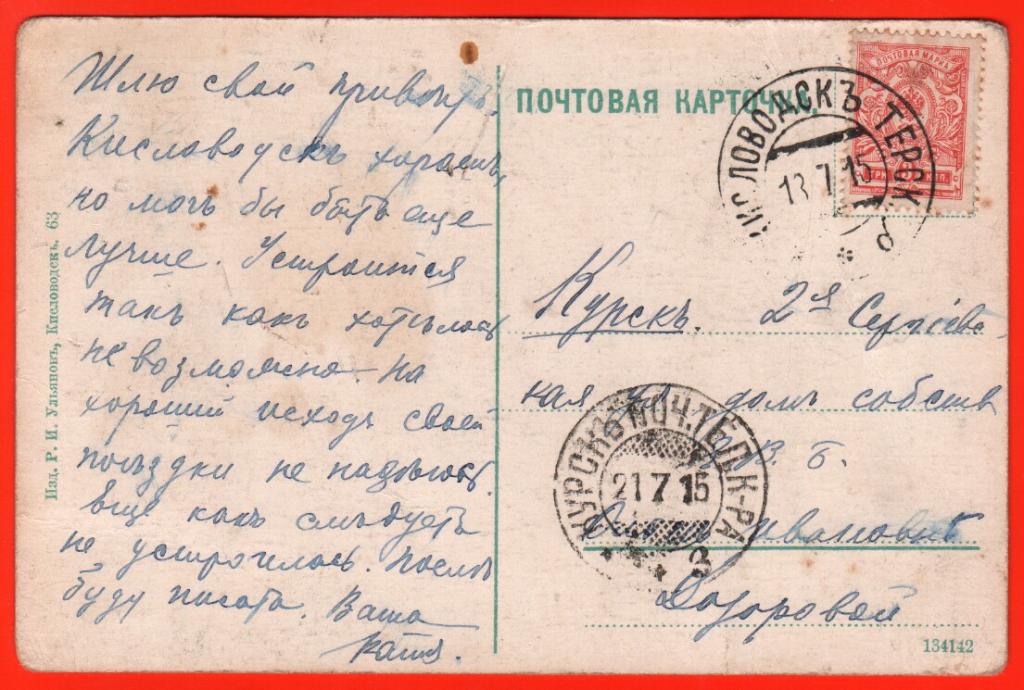 Шлю свой приветъ.
Кисловодскъ хорошъ,
но могъ бы быть еще
лучше. Устроится
такъ какъ хотѣлось
невозможно. На
хорошій исходъ своей
поѣздки не надѣюсь.
еще какъ слѣдуетъ
не устроилась. Послѣ
буду писать. Ваша
Катя.
Изд. Р. И. Ульяновъ, Кисловодскъ. 63
ПОЧТОВАЯ КАРТОЧКА
ПОЧТОВАЯ МАРКА
КИСЛОВОДСКЪ ТЕРСК
13 7 15
Курскъ. 2я Сергіевс
кая ул домъ собств
Е. В. Б.
Ивановнѣ
Дозоровой
КУРСКЪ ПОЧ.ТЕЛ.К-РА
21 7 15
3
134142